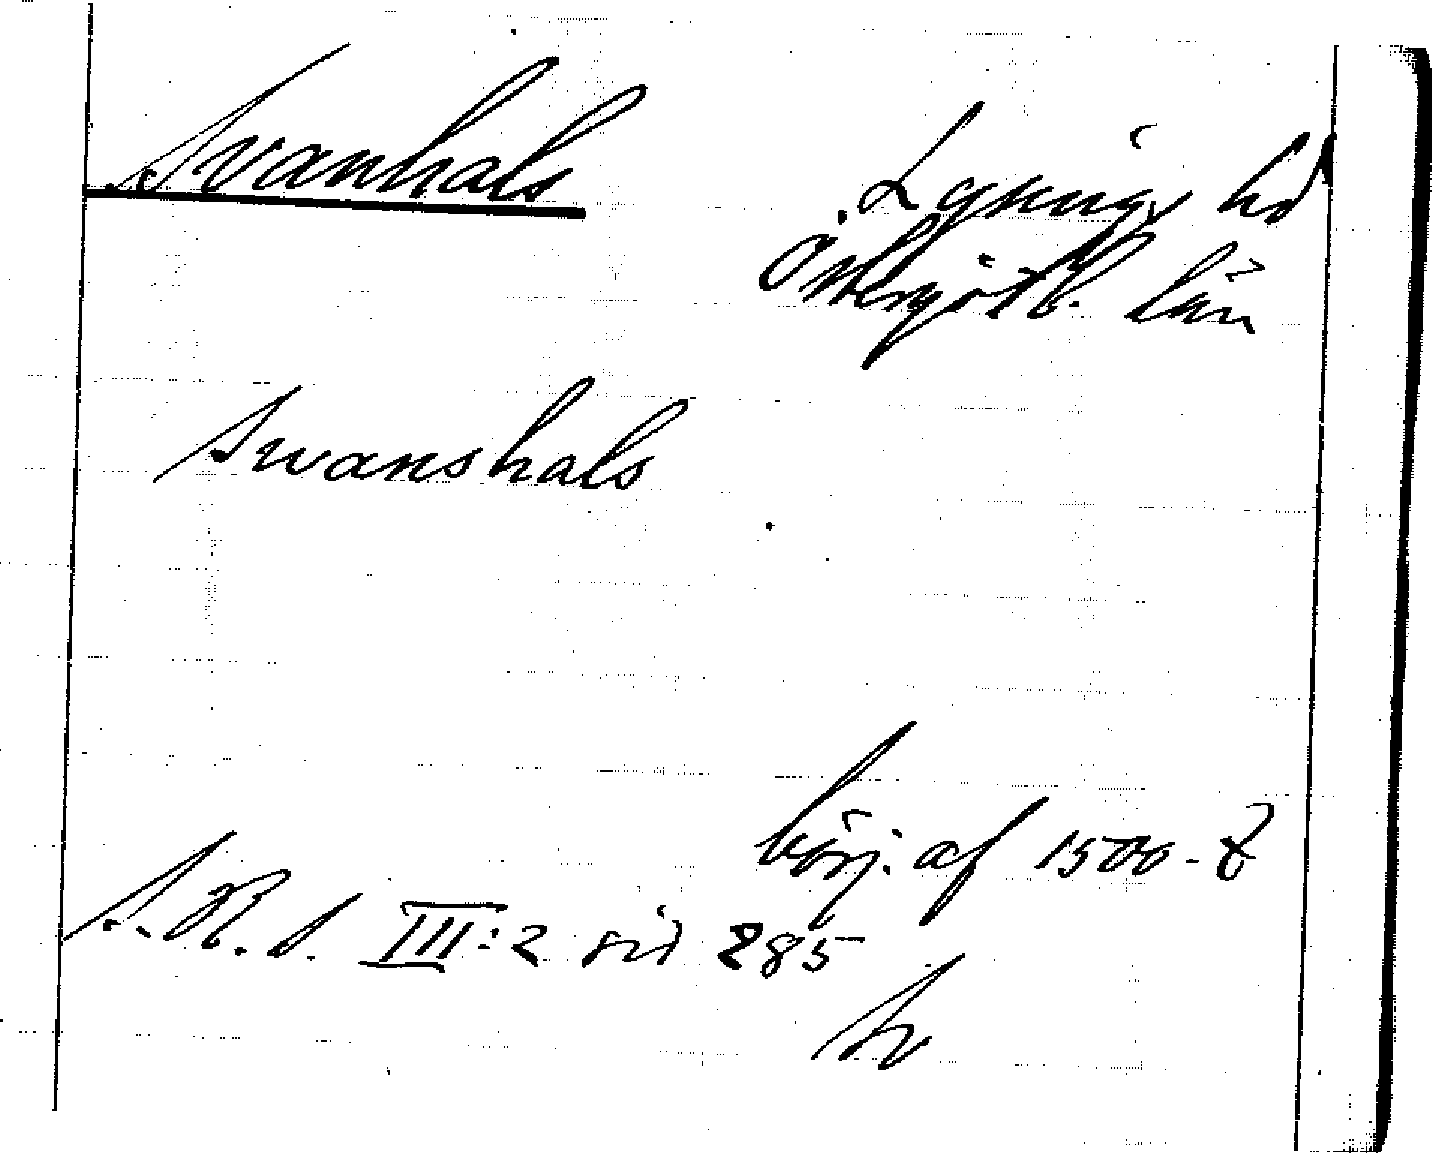 Svanhals
Lysings hd
Östergötl. län
Swanshals
börj. af 1500-t
S.R.S. III:2 sid 285